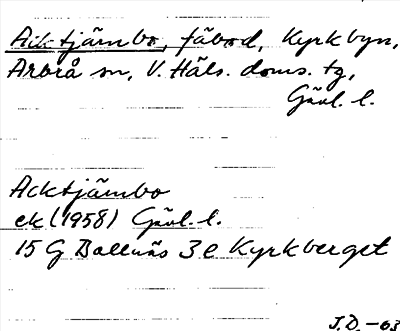 Acktjärnbo, fäbod, Kyrkbyn,
Arbrå sn, V. Häls. doms. tg,
Gävl. l.
Acktjärnbo
ek (1958) Gävl. l.
15 G Bollnäs 3 e Kyrkberget
J.D. -03